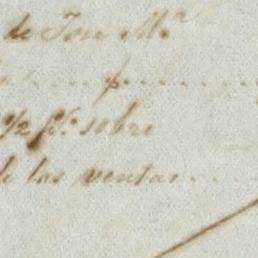 de Jose M.ª
½ p.s sobre
de las ventas